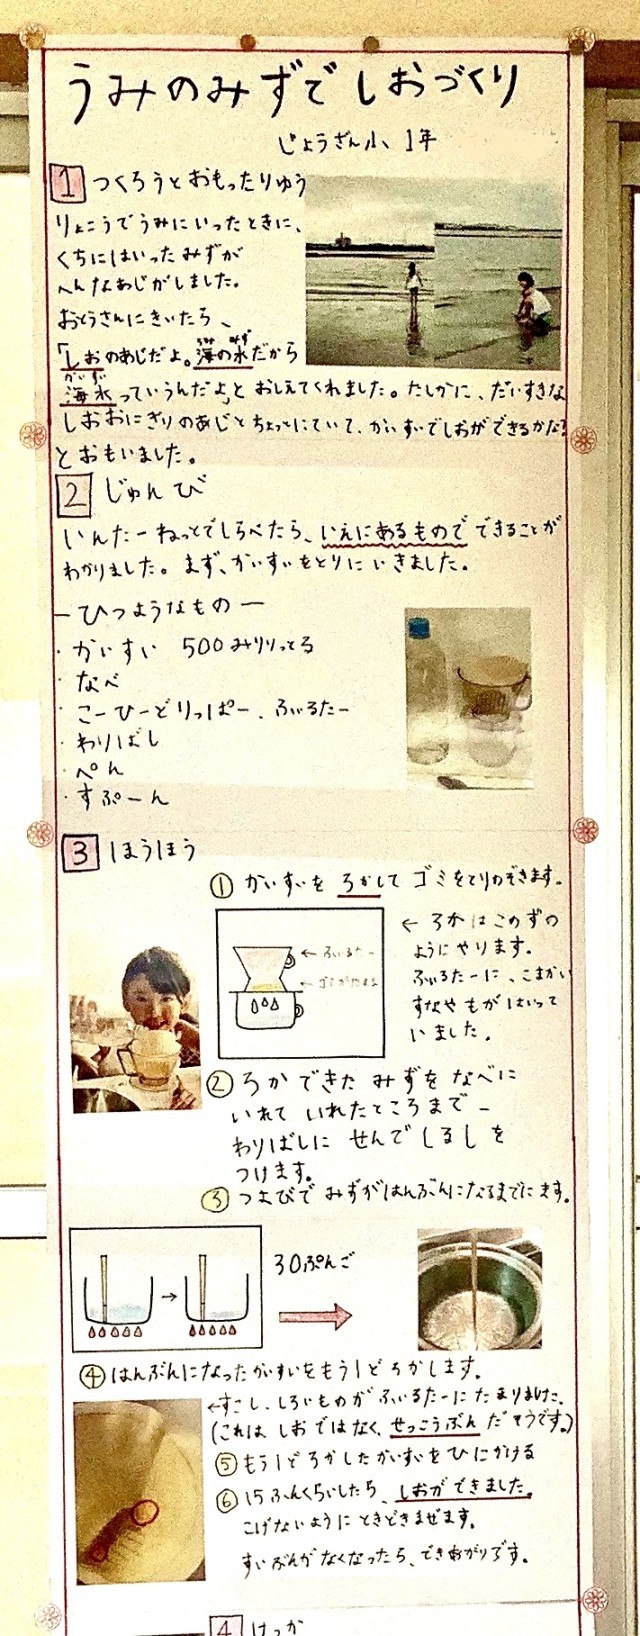 うみのみずでしおづくり
じょうざん小、1年
1 つくろうとおもったりゆう
りょこうでうみにいったときに、
くちにはいったみずが
へんなあじがしました。
おとうさんにきいたら、
「しおのあじだよ。海の水だから
うみ みず
海水っていうんだよ」と おしえてくれました。たしかに、だいすきな
かいすい
しおおにぎりのあじとちょっとにていて、かいすいでしおができるかな?
とおもいました。
2 じゅんび
いんたーねっとでしらべたら、いえにあるもので できることが
わかりました。まず、かいすいをとりにいきました。
ーひつようなものー
・かいすい 500みりりっとる
・なべ
・こーひーどりっぱー、ふぃるたー
・わりばし
・ぺん
・すぷーん
3 ほうほう
① かいすいを ろかして ゴミをとりのぞきます。
←ふぃるたー
←ゴミがたまる
← ろかはこのずの
ようにやります。
ふぃるたーに、こまかい
すなやもがはいって
いました。
② ろかできた みずを なべに
いれて いれたところまで
わりばしに せんで しるしを
つけます。
③ つよびで みずがはんぶんになるまでにます。
→
30ぷんご
④ はんぶんになったかいすいをもう1どろかします。
←すこし、しろいものが ふぃるたーに たまりました。
(これは しおではなく、せっこうぶん だそうです。)
⑤ もう1どろかしたかいすいをひにかける
⑥ 15ふんくらいしたら、しおができました。
こげないように ときどきまぜます。
すいぶんがなくなったら、できあがりです。
4 けっか